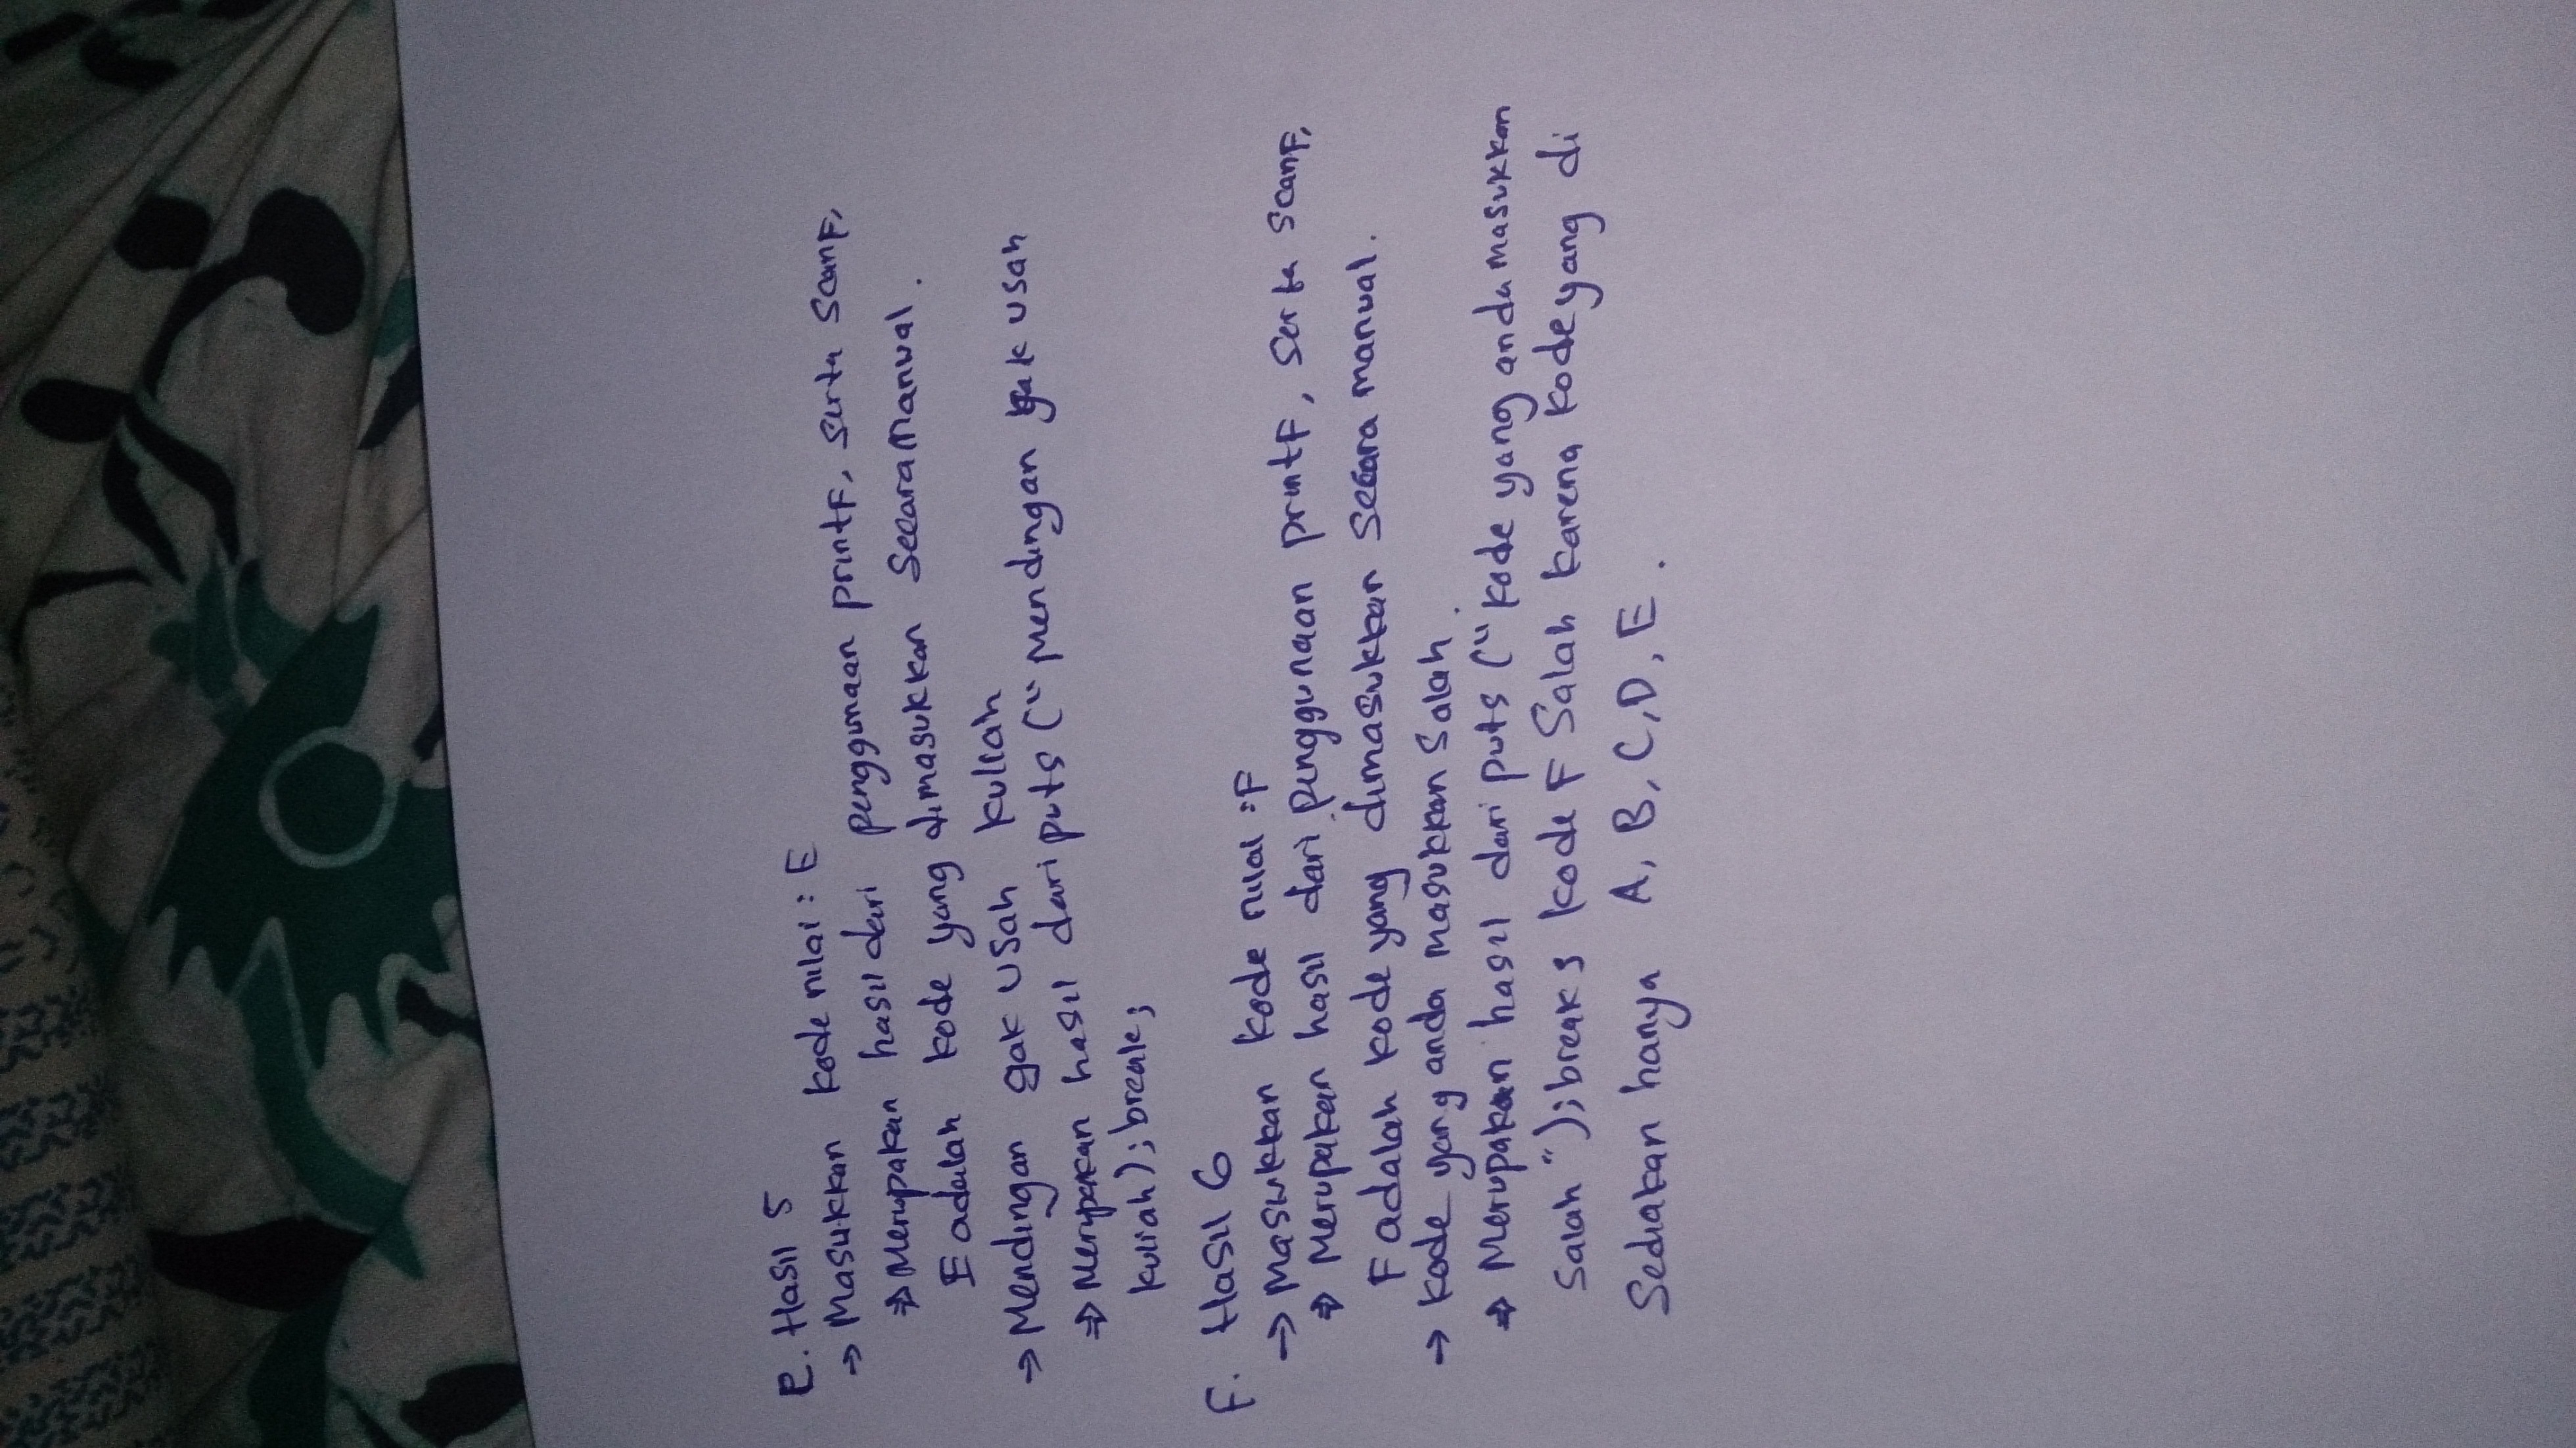 E. Hasil 5
→ Masukkan kode nilai : E
⇒ Merupakan hasil dari penggunaan printf, serta scanf,
E adalah kode yang dimasukkan secara manual.
→ Mendingan gak usah kuliah
⇒ Merupakan hasil dari puts (“Mendingan gak usah
kuliah); break;
F. Hasil 6
→ Masukkan kode nilai : F
⇒ Merupakan hasil dari penggunaan printf, serta scanf,
F adalah kode yang dimasukkan secara manual.
→ Kode yang anda masukkan salah.
⇒ Merupakan hasil dari puts (“Kode yang anda masukkan
salah”); break; kode F salah karena kode yang di
sediakan hanya A, B, C, D, E.